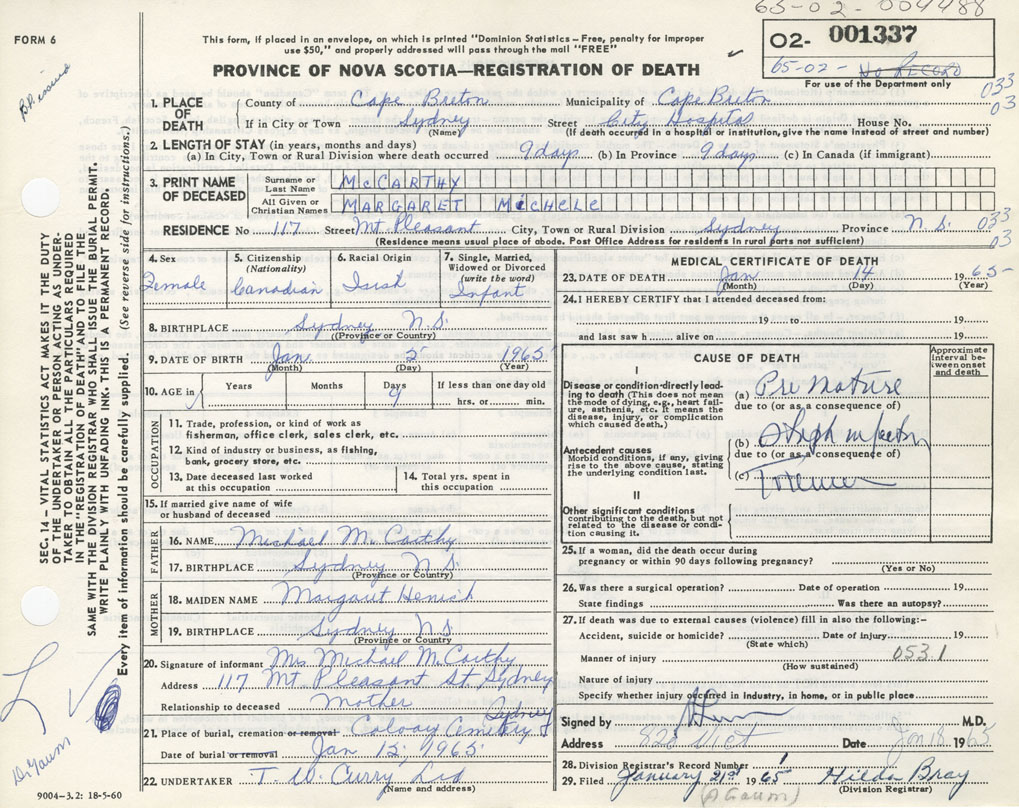 65-02-004488
FORM 6
This form, if placed in an envelope, on which is printed "Dominion Statistics - Free, penalty for improper
use $50," and properly addressed will pass through the mail "FREE"
02- 001337
65-02- No RECORD
For use of the Department only
PROVINCE OF NOVA SCOTIA—REGISTRATION OF DEATH
033
03
1. PLACE OF DEATH
County of Cape Breton Municipality of Cape Breton
If in City or Town Sydney Street City Hospital House No.
(Name) (If death occurred in a hospital or institution, give the name instead of street and number)
2. LENGTH OF STAY (in years, months and days)
(a) In City, Town or Rural Division where death occurred 9 days (b) In Province 9 days (c) In Canada (if immigrant)
3. PRINT NAME OF DECEASED
Surname or Last Name McCARTHY
All Given or Christian Names MARGARET MICHELE
RESIDENCE No 117 Street Mt Pleasant City, Town or Rural Division Sydney Province N.S. 033
03
(Residence means usual place of abode. Post Office Address for residents in rural parts not sufficient)
4. Sex Female
5. Citizenship (Nationality) Canadian
6. Racial Origin Irish
7. Single, Married, Widowed or Divorced (write the word) Infant
8. BIRTHPLACE Sydney N.S.
(Province or Country)
9. DATE OF BIRTH Jan. 5 1965
(Month) (Day) (Year)
10. AGE in Years Months Days 9 If less than one day old
hrs. or min.
OCCUPATION
11. Trade, profession, or kind of work as
fisherman, office clerk, sales clerk, etc.
12. Kind of industry or business, as fishing,
bank, grocery store, etc.
13. Date deceased last worked
at this occupation
14. Total yrs. spent in
this occupation
15. If married give name of wife
or husband of deceased
FATHER
16. NAME Michael McCarthy
17. BIRTHPLACE Sydney N.S.
(Province or Country)
MOTHER
18. MAIDEN NAME Margaret
19. BIRTHPLACE Sydney N.S.
(Province or Country)
20. Signature of informant Mrs. Michael McCarthy
Address 117 Mt. Pleasant St, Sydney
Relationship to deceased Mother
Sydney
21. Place of burial, cremation or removal Calvary Cemetery
Date of burial or removal Jan 15, 1965
22. UNDERTAKER T. W. Curry Ltd
(Name and address)
9004-3.2: 18-5-60
MEDICAL CERTIFICATE OF DEATH
23. DATE OF DEATH Jan 14 1965
(Month) (Day) (Year)
24. I HEREBY CERTIFY that I attended deceased from:
19 to 19
and last saw h alive on 19
CAUSE OF DEATH
Approximate interval between onset and death
I
Disease or condition directly leading to death (This does not mean the mode of dying, e.g., heart failure, asthenia, etc. It means the disease, injury, or complication which caused death.)
(a) Premature
due to (or as a consequence of)
Antecedent causes
Morbid conditions, if any, giving rise to the above cause, stating the underlying condition last.
(b) Staph infection
due to (or as a consequence of)
(c)
II
Other significant conditions
contributing to the death, but not related to the disease or condition causing it.
25. If a woman, did the death occur during
pregnancy or within 90 days following pregnancy?
(Yes or No)
26. Was there a surgical operation? Date of operation 19
State findings Was there an autopsy?
27. If death was due to external causes (violence) fill in also the following:-
Accident, suicide or homicide? Date of injury 19
(State which)
Manner of injury 053.1
(How sustained)
Nature of injury
Specify whether injury occurred in Industry, in home, or in public place
Signed by M.D.
Address Date Jan 18 1965
28. Division Registrar's Record Number 1
29. Filed January 21st 1965 Hilda Bray
(Division Registrar)
SEC. 14 - VITAL STATISTICS ACT MAKES IT THE DUTY
OF THE UNDERTAKER OR PERSON ACTING AS UNDER-
TAKER TO OBTAIN ALL THE PARTICULARS REQUIRED
IN THE "REGISTRATION OF DEATH" AND TO FILE THE
SAME WITH THE DIVISION REGISTRAR WHO SHALL ISSUE THE BURIAL PERMIT.
WRITE PLAINLY WITH UNFADING INK. THIS IS A PERMANENT RECORD.
Every item of information should be carefully supplied. (See reverse side for instructions.)